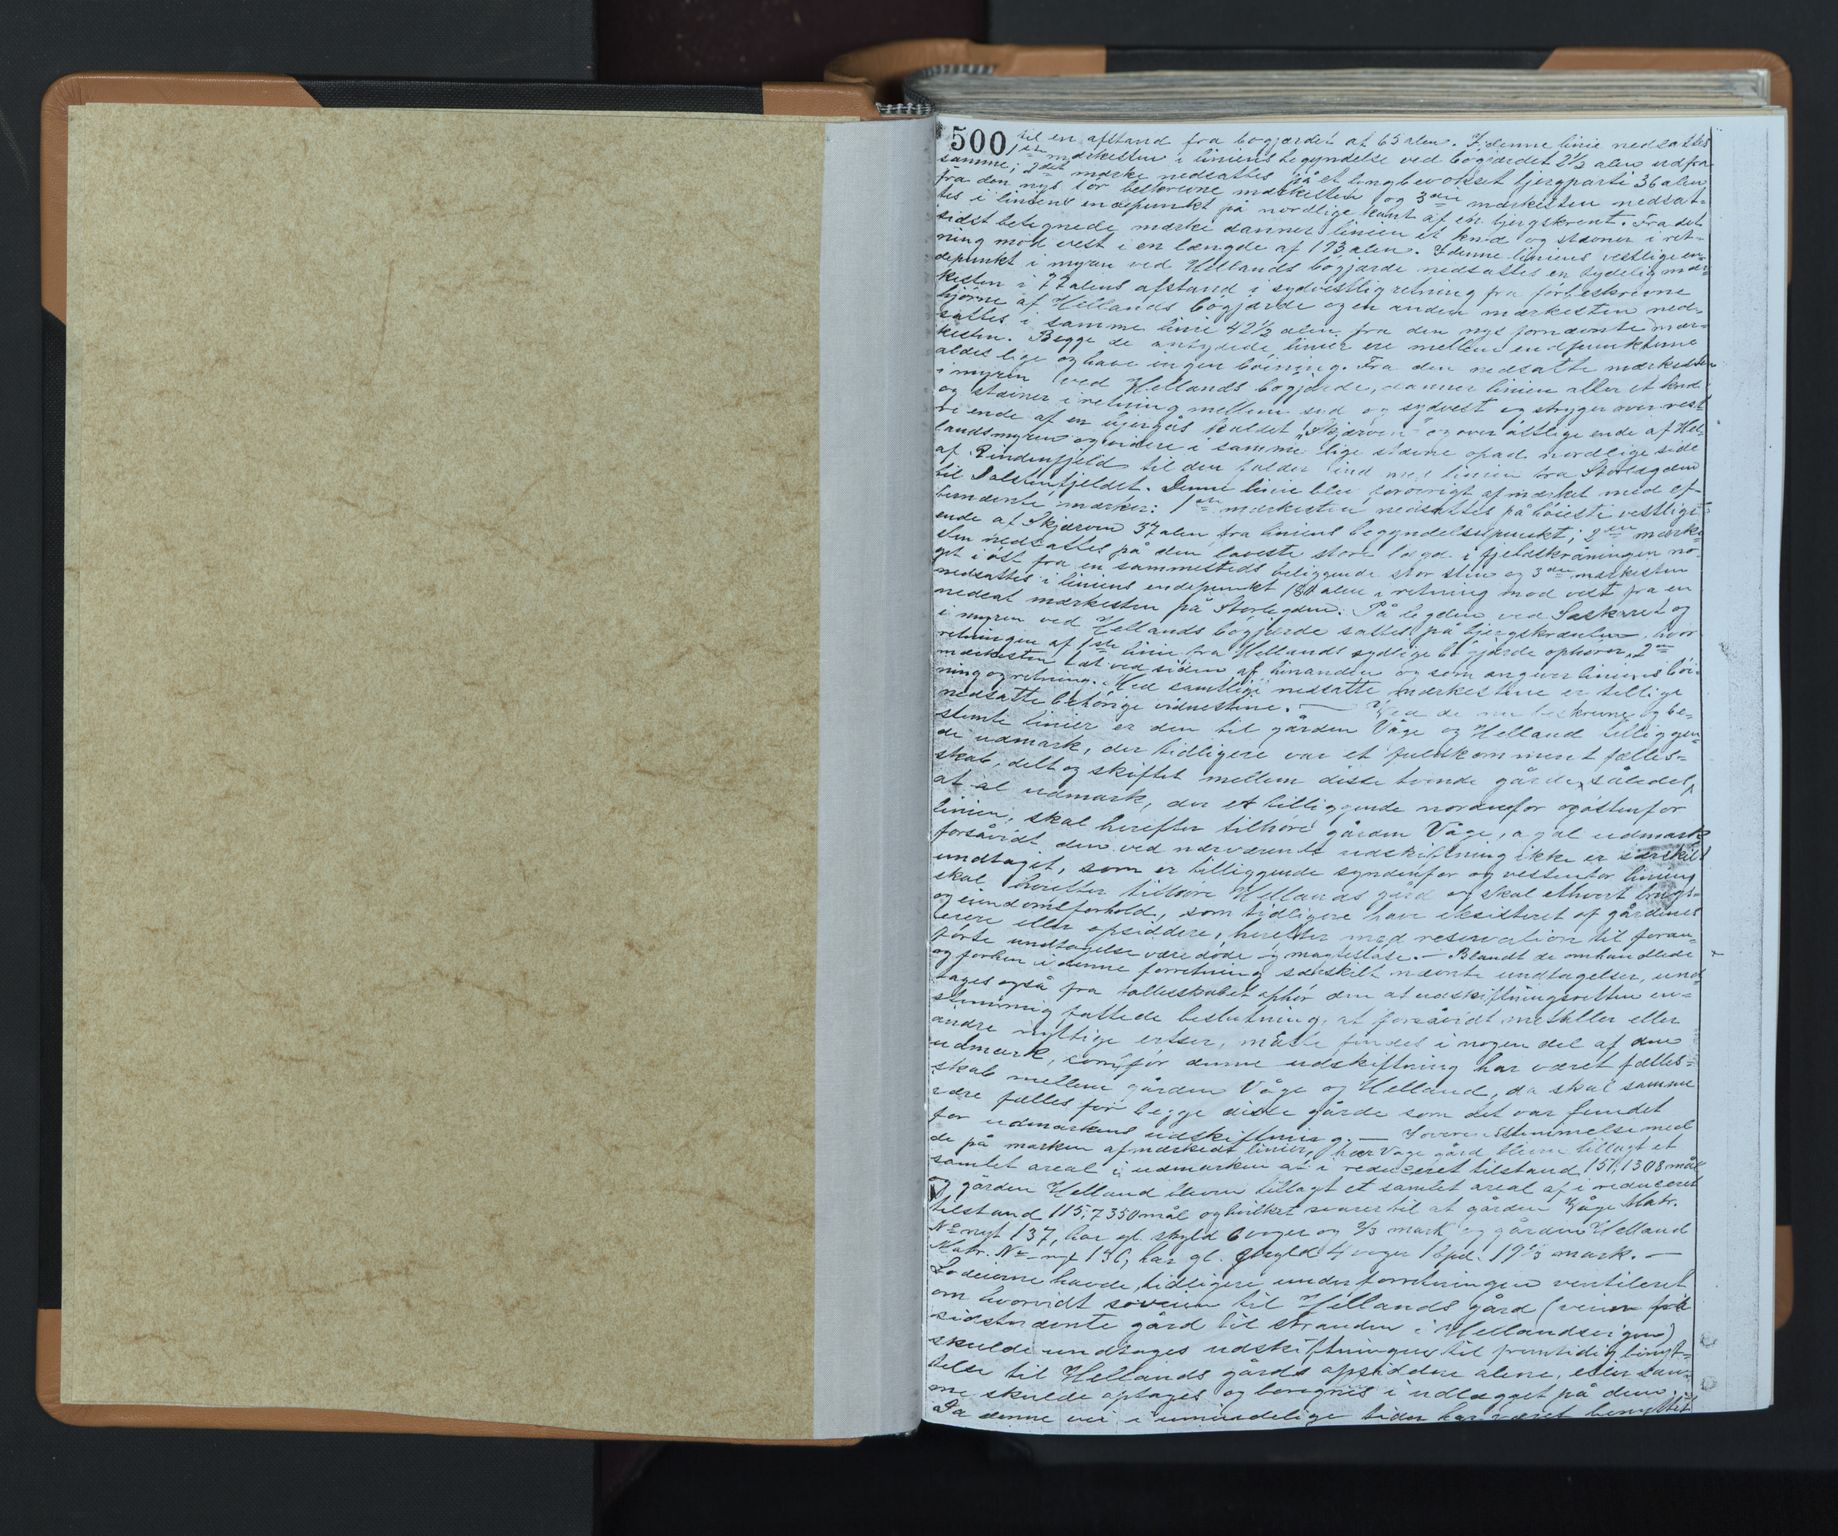 500 til en afstand fra bøgjærdet af 65 alen. I denne linie nedsattes
1ste mærkesten i liniens begyndelse ved bøgjærdet 2½ alen ud fra
samme; 2det mærke nedsattes på et lyngbevokset bjergparti 36 alen
fra den nys før beskrevne mærkesten og 3die mærkesten nedsat-
tes i liniens endepunkt på nordlige kant af en bjergskrent. Fra det
sidst betegnede mærke danner linien et knæ og stævner i ret-
ning mod vest i en længde af 193 alen. I denne liniens vestlige en-
depunkt i myren ved Hellands bøgjærde nedsattes en tydelig mær-
kesten i 77 alens afstand i sydvestlig retning fra førbeskrevne
hjørne af Hellands bøgjærde og en anden mærkesten ned-
sattes i samme linie 42½ alen fra den nys fornævnte mær-
kesten. Begge de antydede linier ere mellem endepunkterne
aldeles lige og have ingen bøining. Fra den nedsatte mærkesten
i myren ved Hellands bøgjærde, danner linien atter et knæ
og stævner i retning mellem syd og sydvest og stryger over vest
re ende af en bjergås kaldet "Skjærven" og over østlige ende af Hel-
landsmyren og videre i samme lige stævne opad nordlige side
af Lindenfjeld til den falder ind med linien fra Storlegden
til Dalstenfjeldet. Denne linie blev forøvrigt afmærket med ef-
ternævnte mærker: 1ste mærkesten nedsattes på høieste vestlige
ende af Skjærven 37 alen fra liniens begyndelsespunkt; 2den mærke-
sten nedsattes på den laveste store i fjeldskråningen no-
get i øst fra en sammesteds beliggende stor sten og 3die mærkesten
nedsattes i liniens endepunkt 180 alen i retning mod vest fra en
nedsat mærkesten på Storlegden. På legden ved og
i myren ved Hellands bøgjærde sattes på bjergskrænten, hvor
retningen af 1ste linie fra Hellands sydlige bøgjærde ophører, 2en
mærkesten tæt ved siden af hinanden og som angiver liniens bøi-
ning og retning. Med samtlige nedsatte mærkestene er tillige
nedsatte behørige vidnestene. — Ved de nu beskrevne og be-
stemte linier er den til gården Våge og Helland tilliggen-
de udmark, der tidligere var et fuldkomment fælles-
skab, delt og skiftet mellem disse tvende gårde, således,
at al udmark, der er tilliggende nordenfor og østenfor
linien, skal herefter tilhøre gården Våge, og al udmark
forsåvidt den ved nærværende udskiftning ikke er særskilt
undtaget, som er tilliggende syndenfor og vestenfor linien,
skal herefter tilhøre Hellands gård og skal ethvert brugs-
og eiendomsforhold, som tidligere have eksisteret af gårdenes
eiere eller opsiddere, herefter med reservation til foran-
førte undtagelse være døde og magtesløse. — Blandt de omhandlede
og forhen i denne forretning særskilt nævnte undtagelser, und-
tages også fra fællesskabet ophør den at udskiftningsretten en-
stemmig fattede beslutning, at forsåvidt metaller eller
andre nyttige ertser, måtte findes i nogen del af den
udmark, som før denne udskiftning har været fælles-
skab mellem gården Våge og Helland, da skal samme
være fælles for begge disse gårde som det var fundet
før udmarkens udskiftning. — I overensstemmelse med
de på marken afmærkede linier, har Våge gård bleven tillagt et
samlet areal i udmarken af i reduceret tilstand 151,1308 mål
og gården Helland bleven tillagt et samlet areal af i reduceret
tilstand 115,7350 mål og hvilket svarer til at gården Våge Matr.
No nyt 137, har gl. skyld 6 voger og ⅔ mark og gården Helland
Matr. No nyt 136, har gl. skyld 4 voger 1 spd. 19⅓ mark. —
Lodeierne havde tidligere under forretningen ventileret
om hvorvidt søveien til Hellands gård (veien fra
sidstnævnte gård til stranden i Hellandsvigen)
skulde undtages udskiftningen til fremtidig benyt-
telse til Hellands gårds opsiddere alene, eller sam-
me skulde optages og beregnes i udlægget på dem.
Da denne vei i umindelige tider har været benyttet